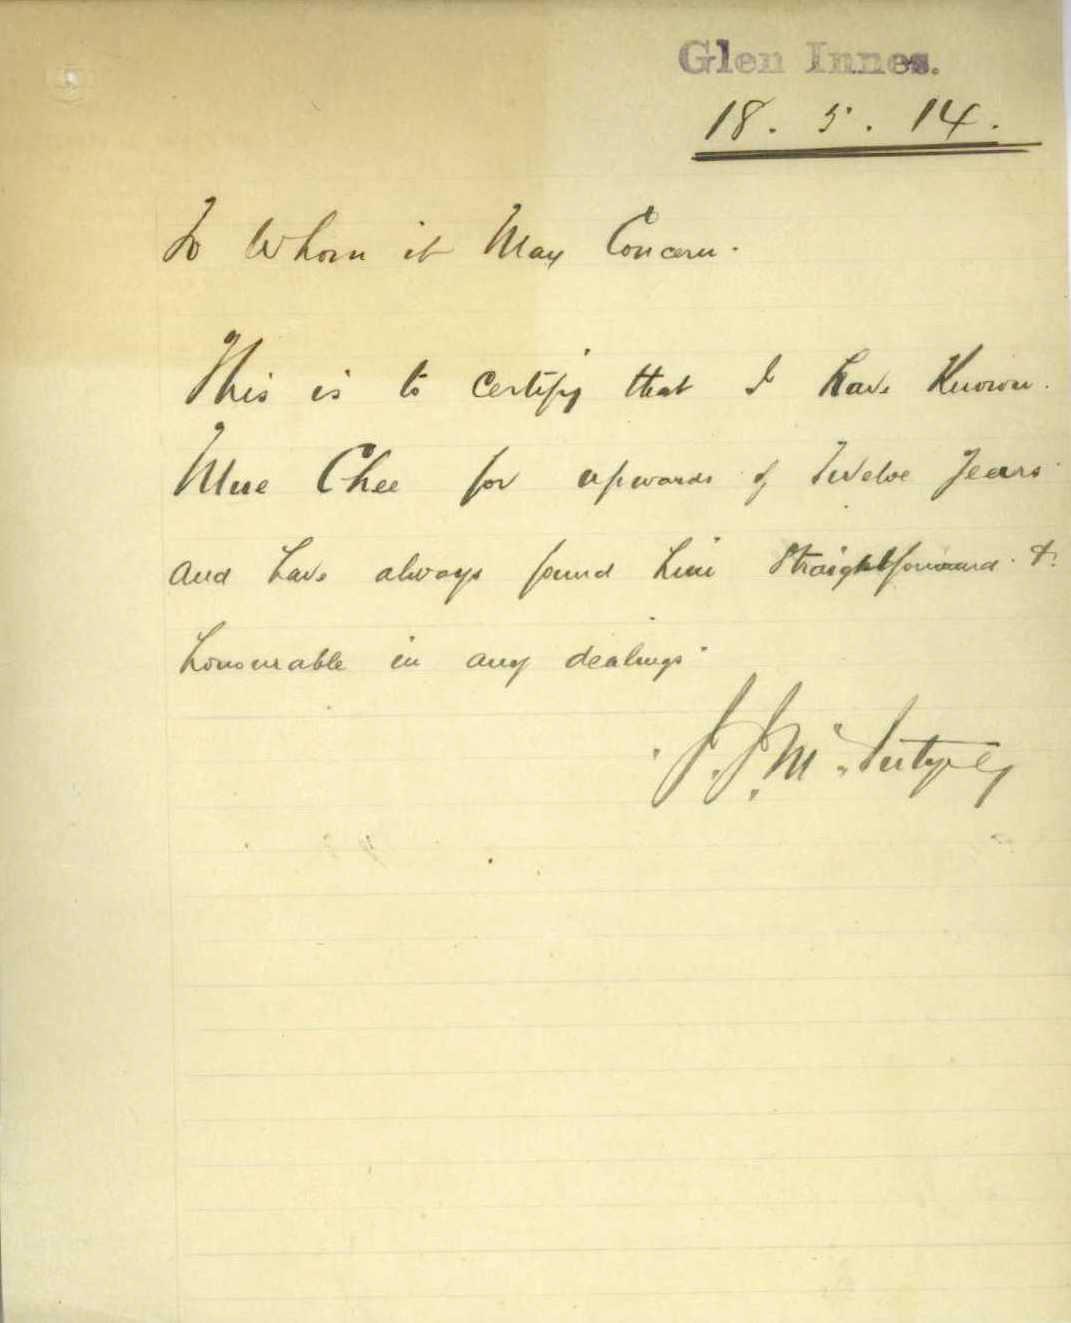 Glen Innes.
18. 5. 14.
To Whom it May Concern.
This is to certify that I have Known
Mue Chee for upwards of Twelve Years
and have always found him Straightforward &
honourable in any dealings
J. J. Mc